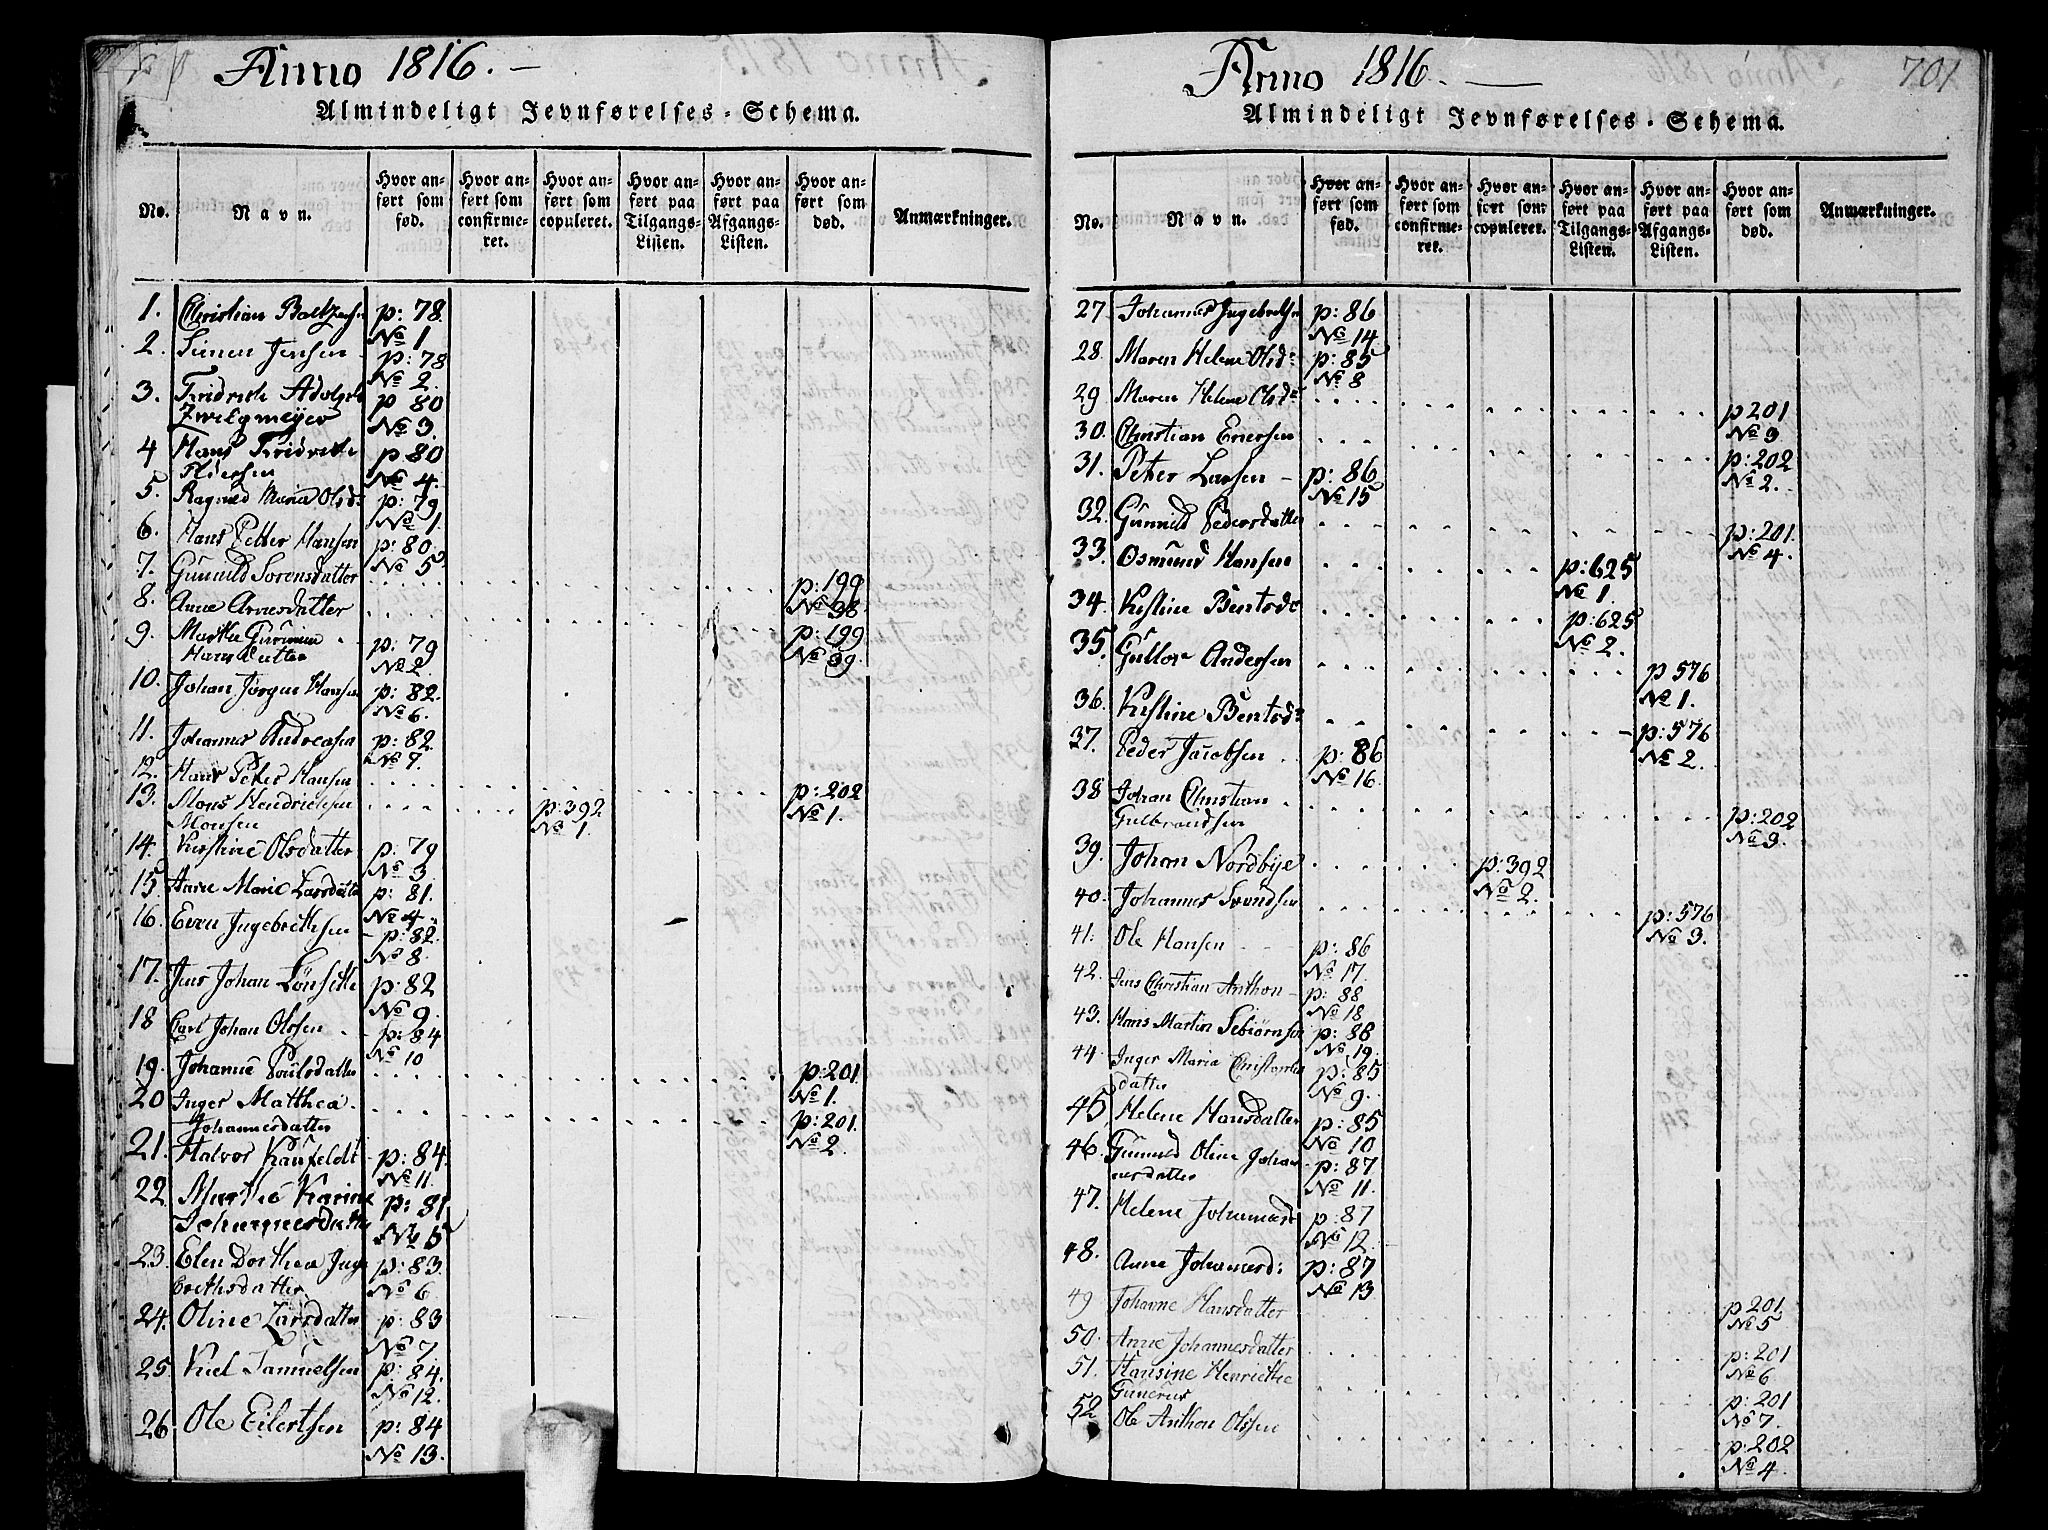 Anno 1816. —
Almindeligt Jevnførelses-Schema.
No.
Navn.
Hvor anført som fød.
Hvor anført som confirmeret.
Hvor anført som copuleret.
Hvor anført paa Tilgangs-Listen.
Hvor anført paa Afgangs-Listen.
Hvor anført som død.
Anmærkninger.
1. Christian p: 78. No 1
2. Simen Jensen p: 78 No 2.
3. Fridrich Adolph Zwilgmeyer p 80 No 3.
4 Hans Fridrich p 80 No 4.
5. Ragnild Maria Olsd: p: 79 No 1.
6. Hans Petter Hansen p: 80. No 5
7. Gunnild Sørensdatter p: 199 No 38
8. Anne Arnesdatter p: 199 No 39
9. Marthe Hansdatter p: 79 No 2
10. Johan Jørgen Hansen p: 82. No 6.
11. Johannes Andreasen p: 82. No 7.
12. Hans Peter Hansen p: 202 No 1.
13. Mons Hendrichsen Monsen p: 392 No 1.
14. Kirstine Olsdatter p: 79 No 3
15. Anne Marie Larsdatter p: 81. No 4.
16. Even Ingebrethsen p: 82. No 8.
17. Jens Johan p: 82 No 9.
18 Carl Johan Olssen p: 84 No 10
19. Johanne Poulsdatter p: 201. No 1.
20 Inger Matthea Johannesdatter p: 201. No 2.
21. Halvor p: 84. No 11.
22 Marthe Karine Johannesdatter p: 81 No 5
23. Elen Dorthea Ingebrethsdatter p: 83. No 6
24. Oline Larsdatter p: 83 No 7
25. Kiel Samuelsen p: 84. No 12.
26. Ole Eilertsen p: 84 No 13.
Anno 1816. —
701
Almindeligt Jevnførelses-Schema.
No.
Navn.
Hvor anført som fød.
Hvor anført som confirmeret.
Hvor anført som copuleret.
Hvor anført paa Tilgangs-Listen.
Hvor anført paa Afgangs-Listen.
Hvor anført som død.
Anmærkninger.
27. Johannes Ingebrethsen p: 86 No 14
28. Maren Helene Olsdr p: 85 No 8
29 Maren Helene Olsdr p 201 No 3
30. Christian Ericsen p: 202 No 2.
31. Peter Larsen p: 86 No 15
32. Gunnild Pedersdatter p: 201. No 4.
33. Osmund Hansen p: 625 No 1.
34. Kistine Bentsdr p: 625 No 2.
35. Gullov Andersen p 576 No 1.
36. Kistine Bentsdr p: 576 No 2.
37. Peder Jacobsen p: 86 No 16
38 Johan Christian Gulbrandsen p: 202 No 3.
39. Johan Nordbye p: 392 No 2.
40. Johannes Svendsen p: 576 No 3.
41. Ole Hansen p: 86 No 17
42. Jens Christian Anthon p: 88 No 18
43. Hans Martin p: 88 No 19.
44 Inger Maria datter p: 85 No 9.
45 Helene Hansdatter p: 85 No 10
46. Gunnild Oline Johannesdatter p: 87 No 11.
47. Helene Johannesd p: 87 No 12.
48. Anne Johannesd: p: 87 No 13
49 Johanne Hansdatter p 201. No 5
50. Anne Johannesdatter p: 201 No 6
51. Hansine Henriethe p: 201 No 7.
52 Ole Anthon Olssen p: 202 No 4.